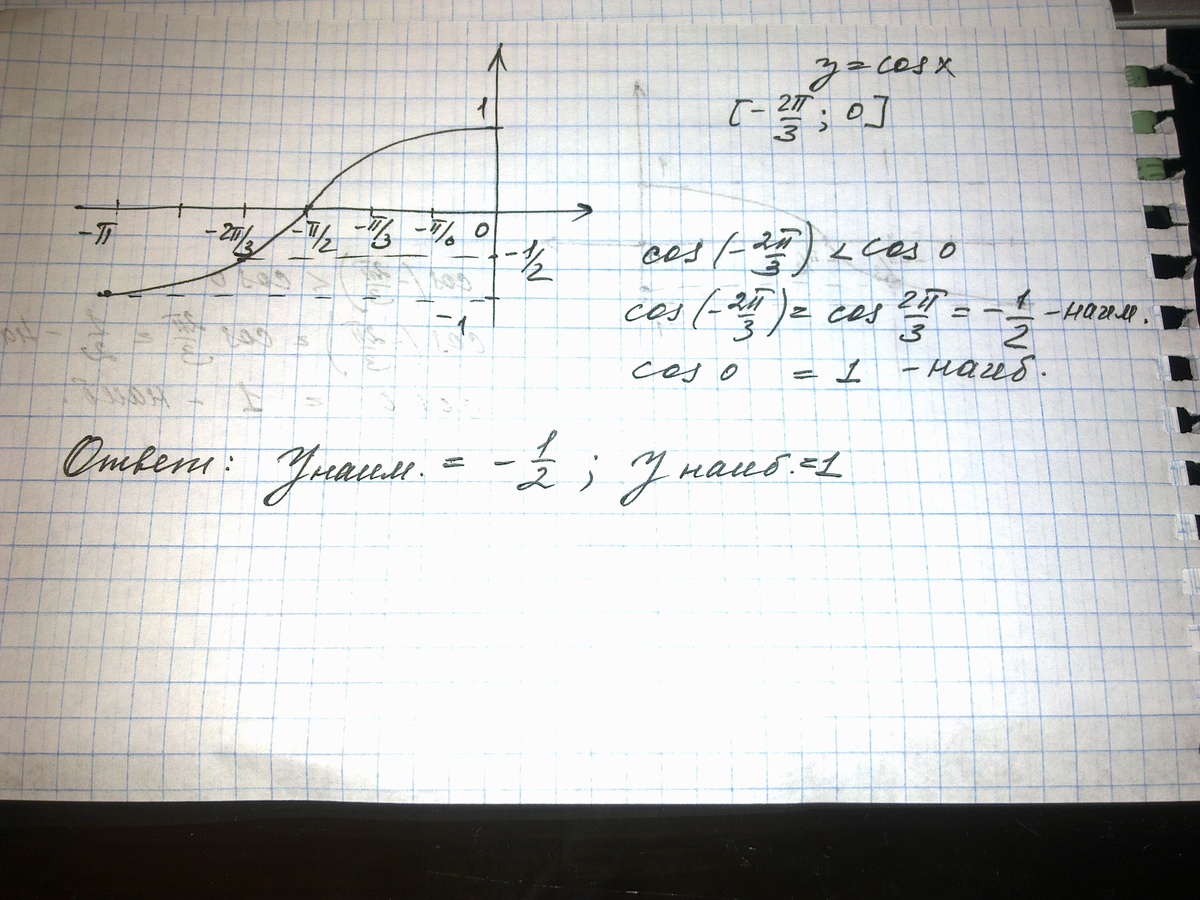 y = cos x
[-2π/3; 0]
1
-π -2π/3 -π/2 -π/3 -π/6 0
-1/2
-1
cos(-2π/3) < cos 0
cos(-2π/3) = cos 2π/3 = -1/2 - наим.
cos 0 = 1 - наиб.
Ответ: Yнаим. = -1/2; Yнаиб. = 1